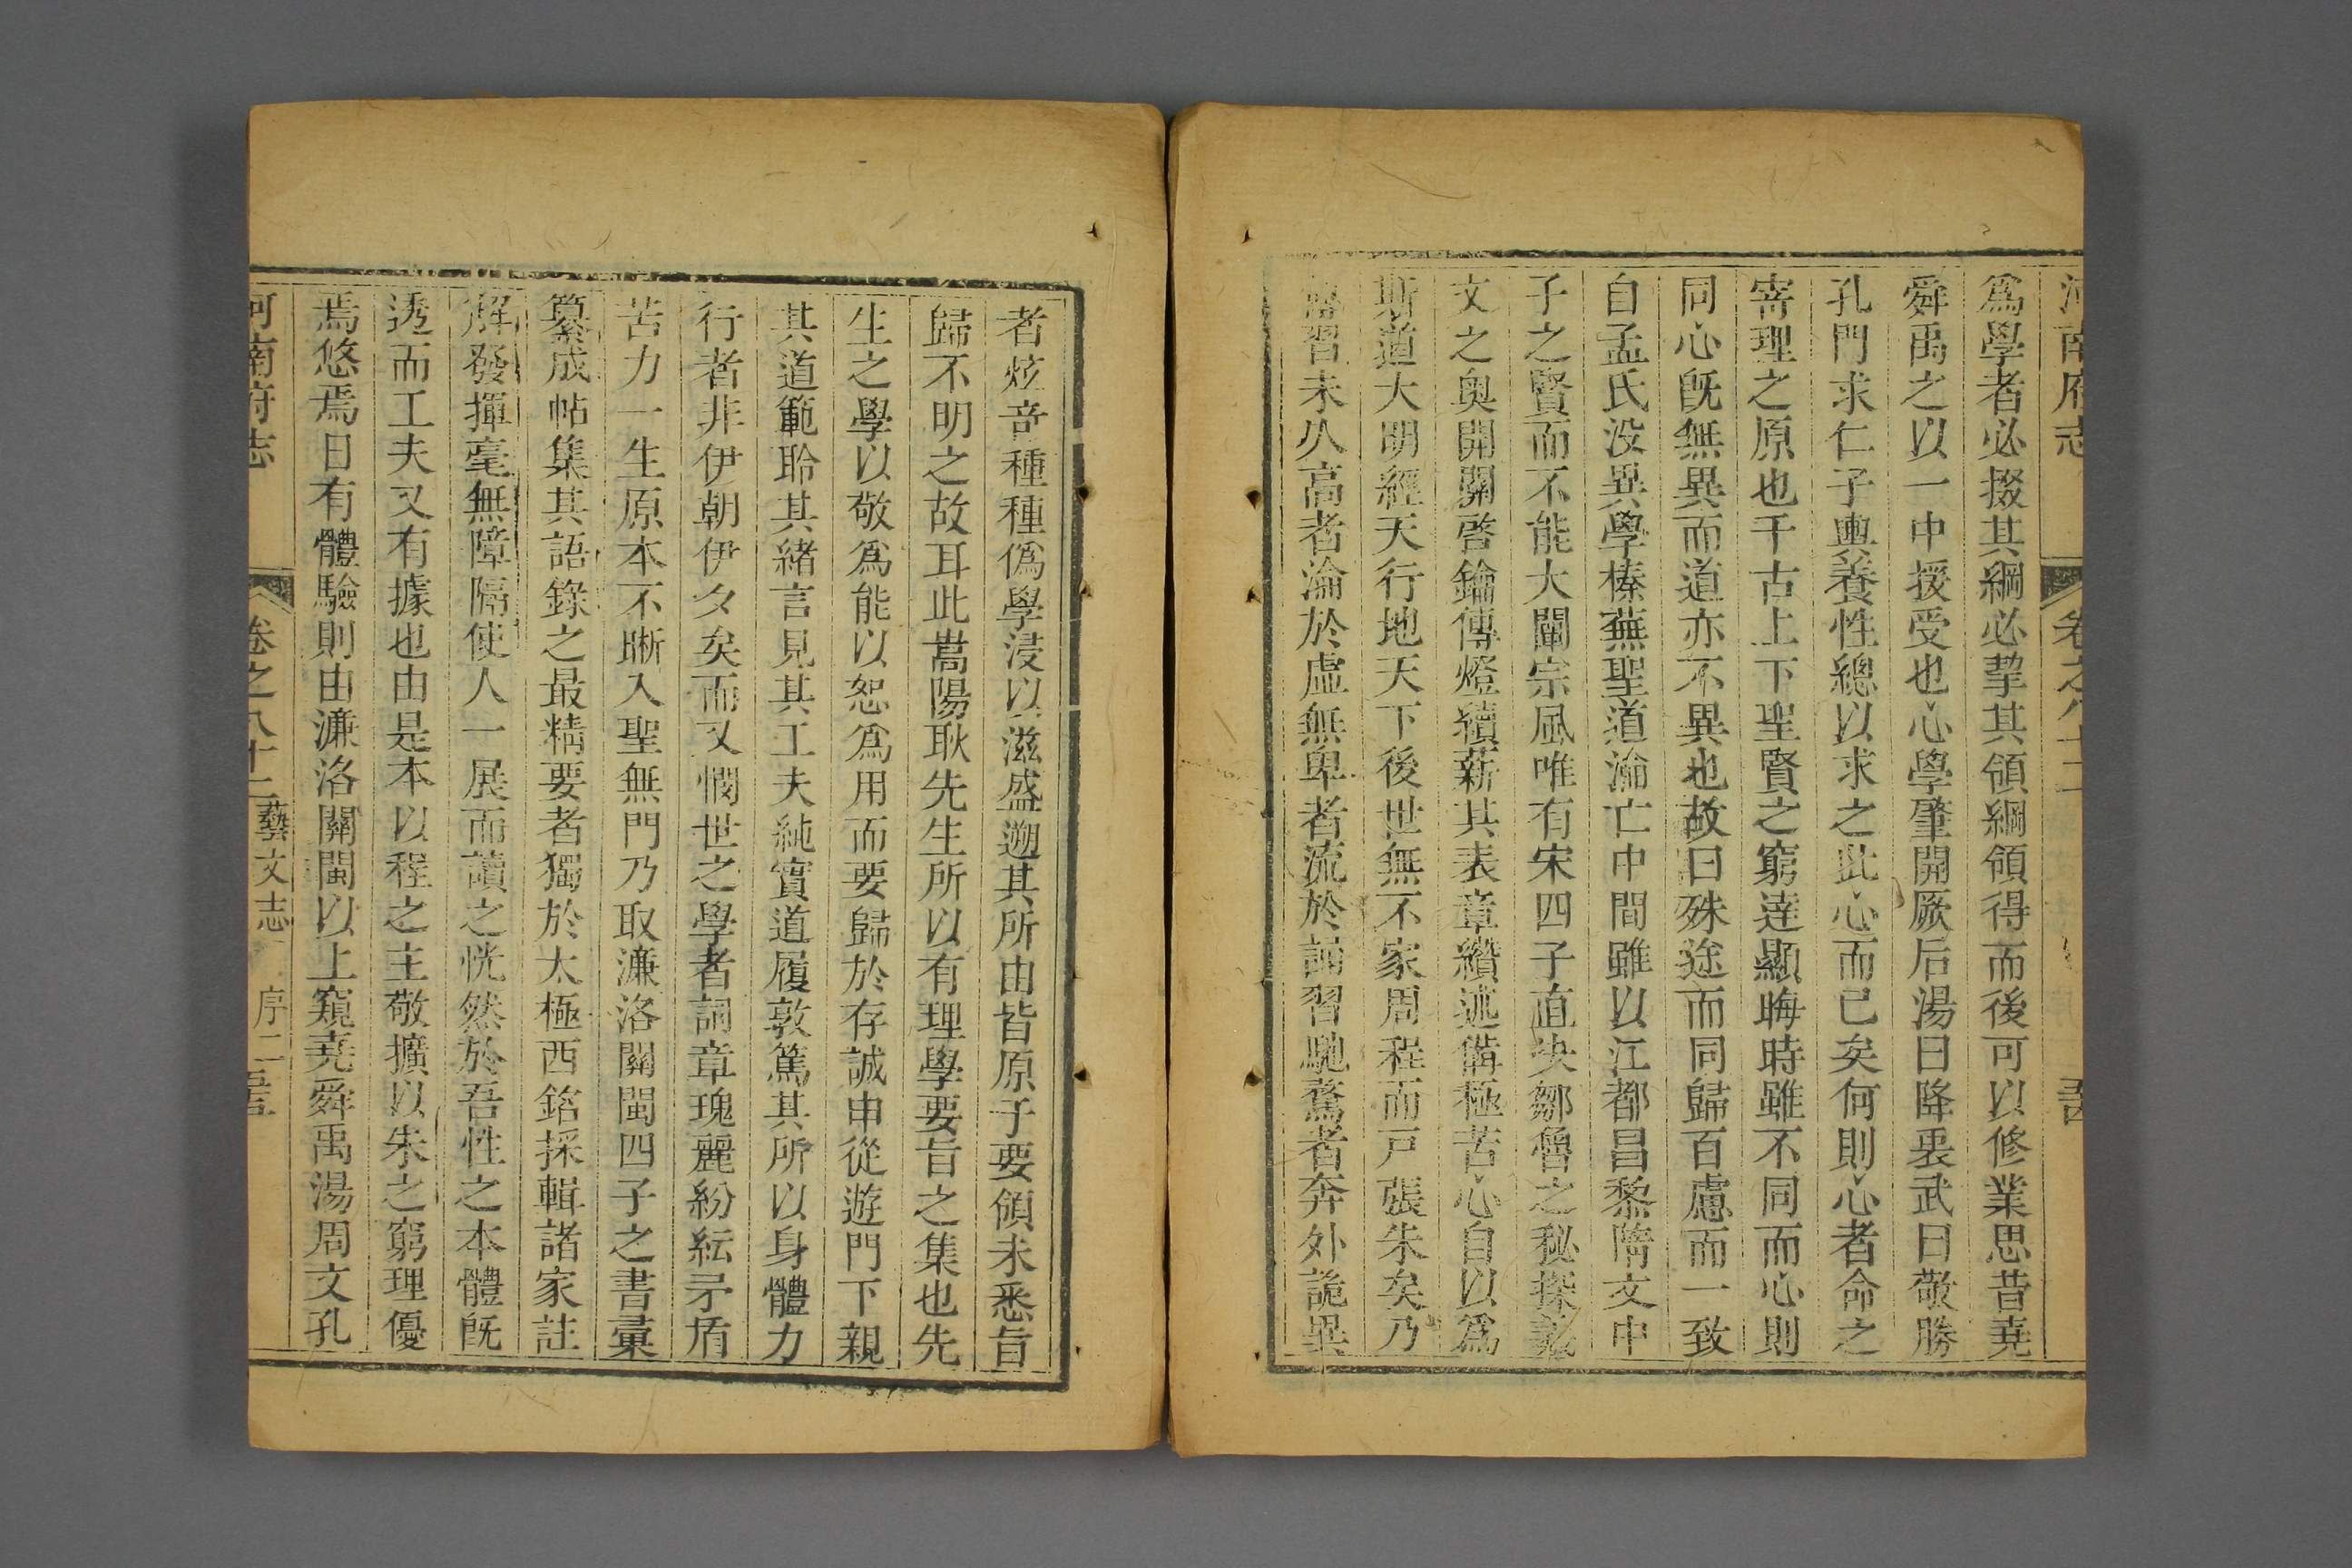 河南府志 卷之八十二
爲學者必掇其綱必挈其領綱領得而後可以修業思昔堯
舜禹之以一中授受也心學肇開厥后湯曰降衷武曰敬勝
孔門求仁子輿養性總以求之此心而已矣何則心者命之
寄理之原也千古上下聖賢之窮達顯晦時雖不同而心則
同心旣無異而道亦不異也故曰殊途而同歸百慮而一致
自孟氏没異學榛蕪聖道淪亡中間雖以江都昌黎隋文中
子之賢而不能大闡宗風唯有宋四子直抉鄒魯之秘探羲
文之奥開關啓鑰傳燈續薪其表章纘述備極苦心自以爲
斯道大明經天行地天下後世無不家周程而戸張朱矣乃
習未八高者淪於虛無卑者流於訓習馳騖者奔外詭異
者炫奇種種僞學浸以滋盛遡其所由皆原于要領未悉旨
歸不明之故耳此嵩陽耿先生所以有理學要旨之集也先
生之學以敬爲能以恕爲用而要歸於存誠申從遊門下親
其道範聆其緒言見其工夫純實道履敦篤其所以身體力
行者非伊朝伊夕矣而又憫世之學者詞章瑰麗紛紜矛盾
苦力一生原本不晰入聖無門乃取濂洛關閩四子之書彙
纂成帖集其語錄之最精要者獨於太極西銘採輯諸家註
解發揮毫無障隔使人一展而讀之恍然於吾性之本體旣
透而工夫又有據也由是本以程之主敬擴以朱之窮理優
焉悠焉日有體驗則由濂洛關閩以上窺堯舜禹湯周文孔
河南府志 卷之八十二 藝文志 序二